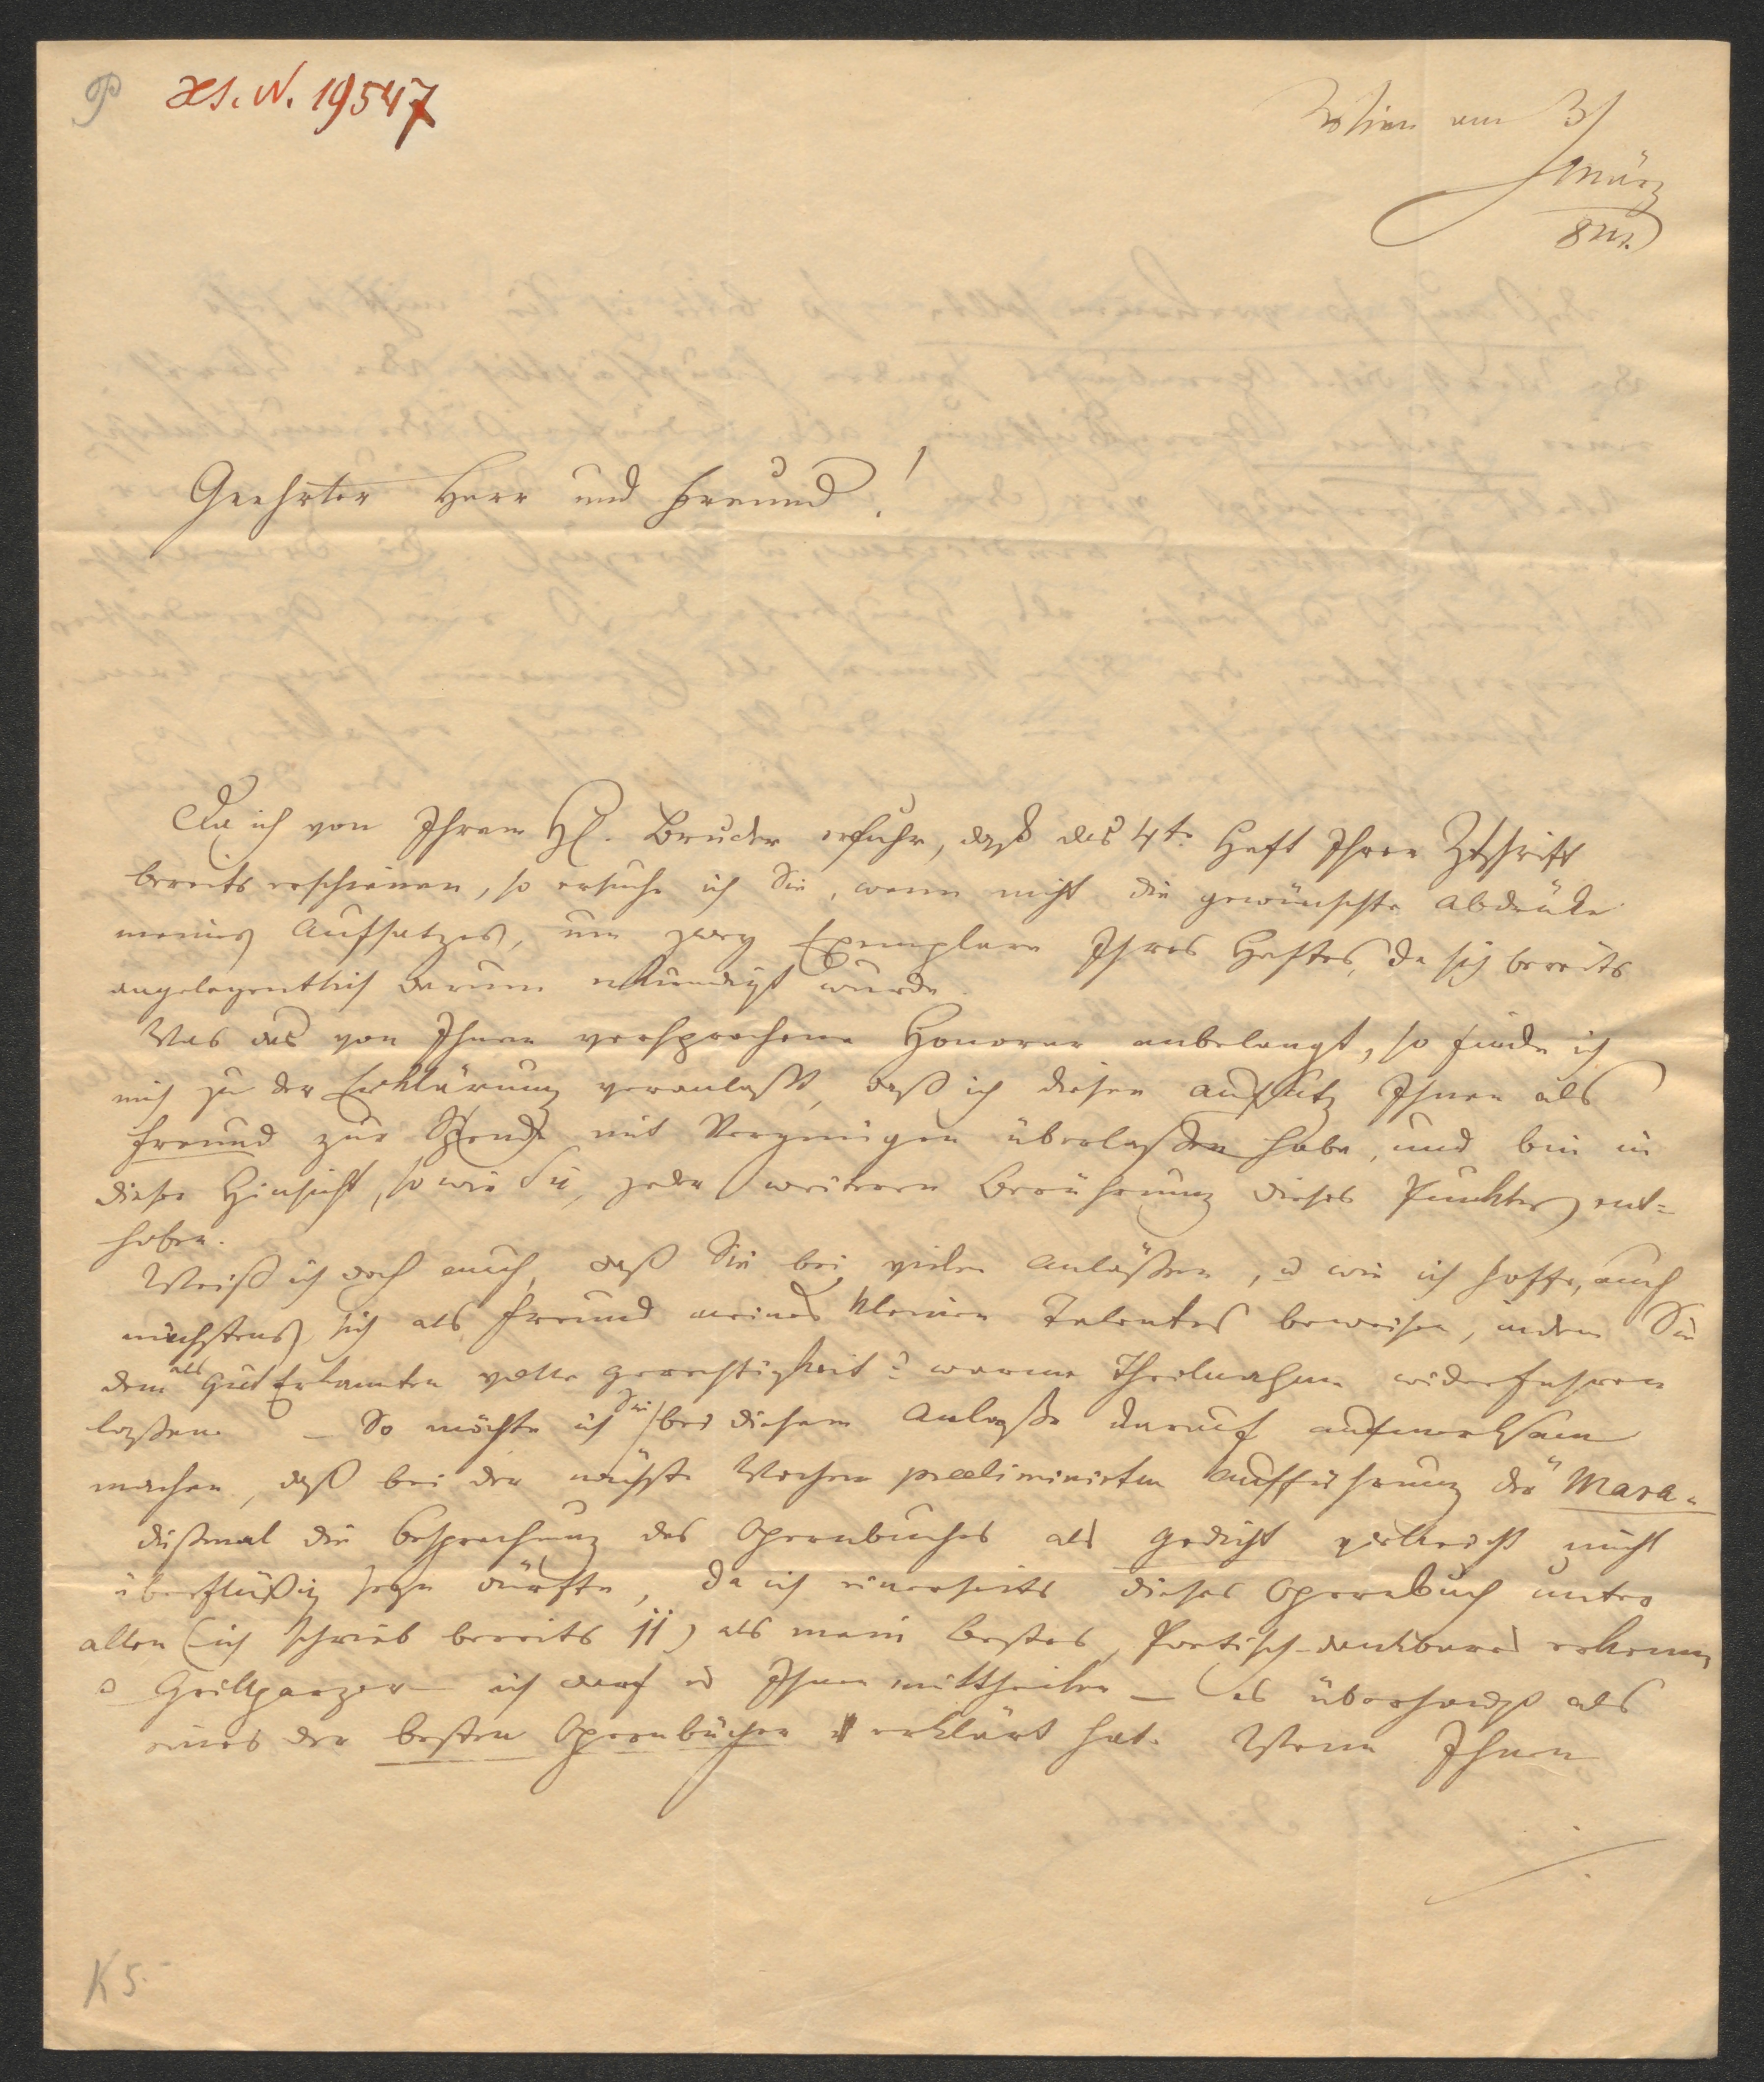 P Hs. N. 19547
Wien am 3/
März
Geehrter Herr und Freund!
Da ich von Ihrem H. Bruder erfuhr, daß das 4te Heft Ihrer Ztschrift
bereits erschienen, so ersuche ich Sie, wenn nicht die gewünschte Abdrücke
meines Aufsatzes, um zwey Exemplare Ihres Heftes, da sich bereits
angelegentlich darum erkundigt wurde.
Was das von Ihnen versprochene Honorar anbelangt, so finde ich
mich zu der Erklärung veranlaßt, daß ich diesen Aufsatz Ihnen als
Freund zur Spende mit Vergnügen überlaßen habe, und bin in
dieser Hinsicht, so wie Sie, jeder weiteren Berührung dieses Punktes ent=
hoben.
Weiß ich doch auch, daß Sie bei vielen Anläßen, u wie ich hoffe, auch
nächstens, sich als Freund meines kleinen Talentes beweisen, indem Sie
dem als Gut Erkannten volle Gerechtigkeit u warme Theilnahme widerfahren
laßen. – So möchte ich Sie bei diesem Anlaße darauf aufmerksam
machen, daß bei der nächste Wochen präliminirten Aufführung der "Mara"
dießmal die Besprechung des Opernbuches als Gedicht vielleicht nicht
überflüßig seyn dürfte, da ich einerseits dieses Opernbuch unter
allen (ich schrieb bereits 11) als mein bestes, Poetisch-dankbares erkenne,
u Grillparzer – ich darf es Ihnen mittheilen – es überhaupt als
eines der besten Opernbücher erklärt hat. Wenn Ihnen
K 5.